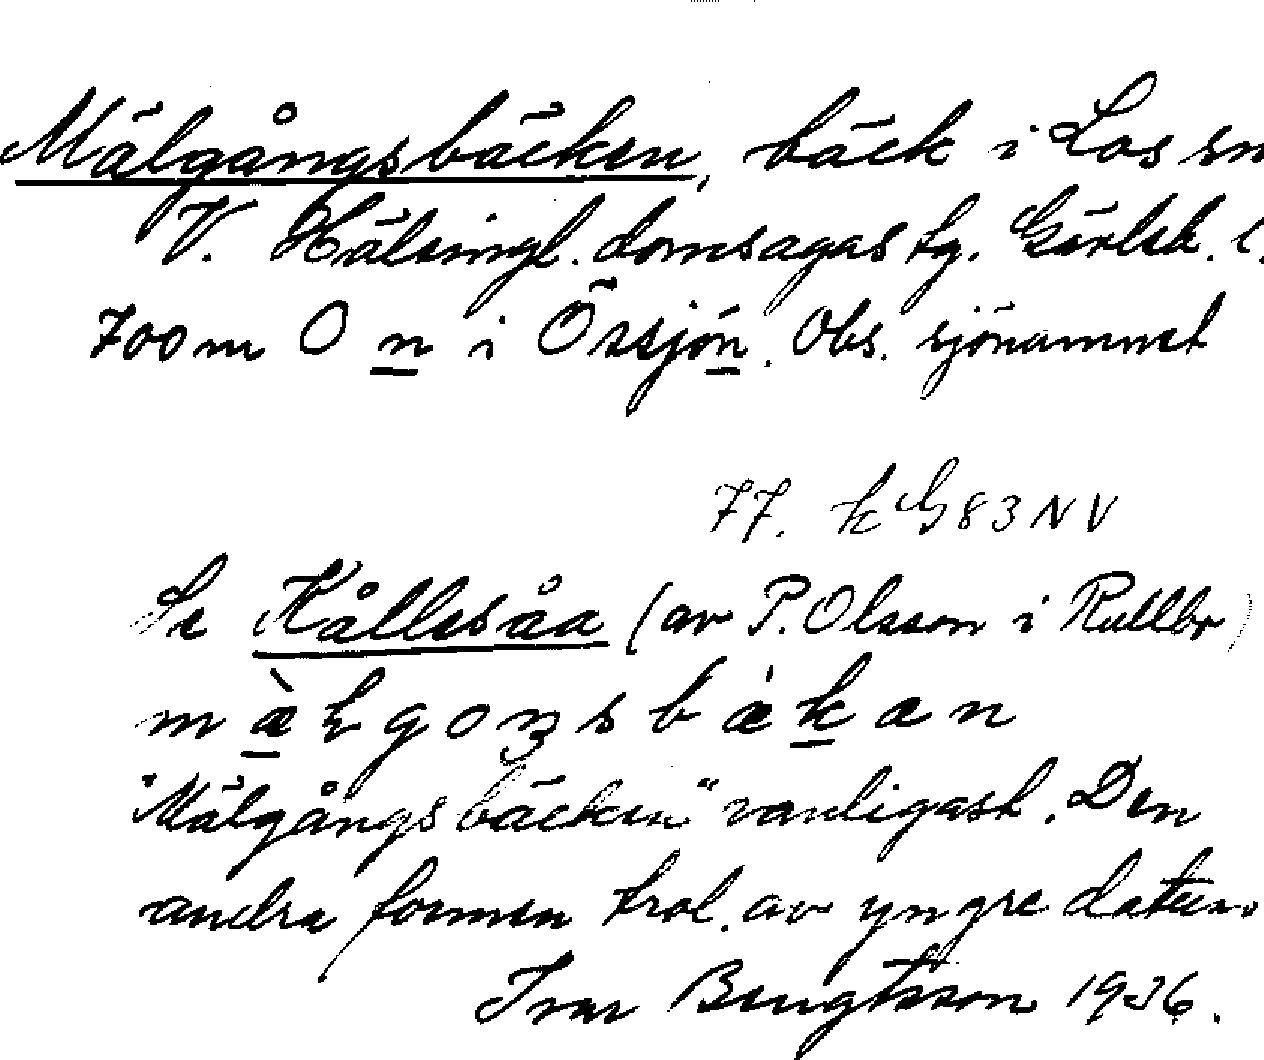 Mälgångsbäcken, bäck i Los sn
V. Hälsingl. domsagas tg. Gävleb. l.
700 m O n i Össjön. Obs. sjönamnet
77. k G83NV
Se Kållesåa (av P. Olsson i Rullbr)
mæ̀ɫgoŋsbækan
"Mälgångsbäcken" vanligast. Den
andra formen trol. av yngre datum
Ivar Bengtsson 1936.